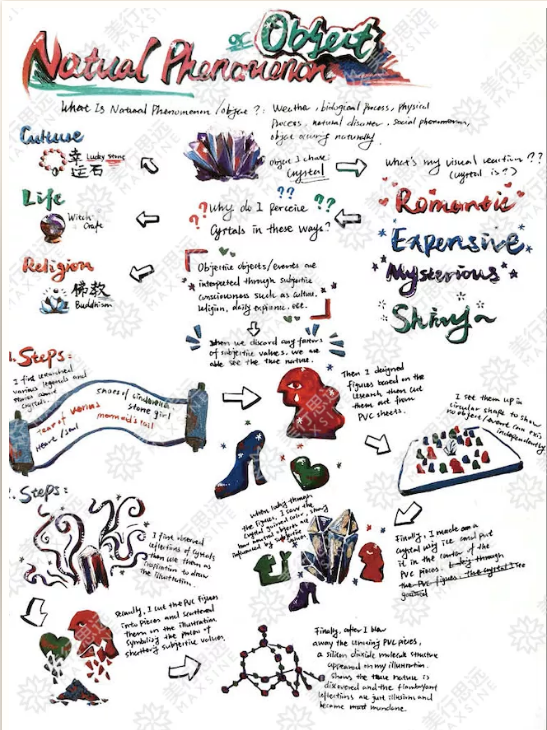 Natual Phenomenon
or Object
What Is Natural Phenomenon /object ? : Weather, biological process, physical
process, natural disaster, social phenomenon,
object occurring naturally.
Culture
幸运石 Lucky Stone
Object I chose:
Crystal
What's my visual reaction ??
(crystal is?)
Life
Witch
Craft
Why do I perceive
Crystals in these ways?
?? ?? ??
Romantic
Expensive
Mysterious
Shiny
Religion
佛教
Buddhism
Objective objects/events are
interpreted through subjective
consciousness such as culture,
religion, daily experience. etc.
When we discard any factors
of subjective values. we are
able see the true nature.
1. Steps:
I first researched
various legends and
stories about
crystals.
shoes of Cinderella
stone girl
Tear of Venus
mermaid's tail
Heart / Soul
Then I designed
figures based on the
research then cut
them out from
PVC sheets.
I set them up in
circular shape to show
no object/event can
independently
2. Steps:
I first observed
reflections of crystals
then use them as
inspiration to draw
the illustration.
When looking through
the figures, I saw the
crystal
how natural objects are
influenced by subjective
Finally, I made a
crystal with ice and put
it in the center of the
PVC pieces.
Secondly, I cut the PVC figures
into pieces and scattered
them on the illustration
symbolizing the process of
shattering subjective values.
Finally, after I blow
away the PVC pieces,
a silicon dioxide molecule structure
appeared on my illustration.
shows the true nature is
discovered and the flamboyant
reflections are just illusions and
become most mundane.
美行思远
MAXSINE